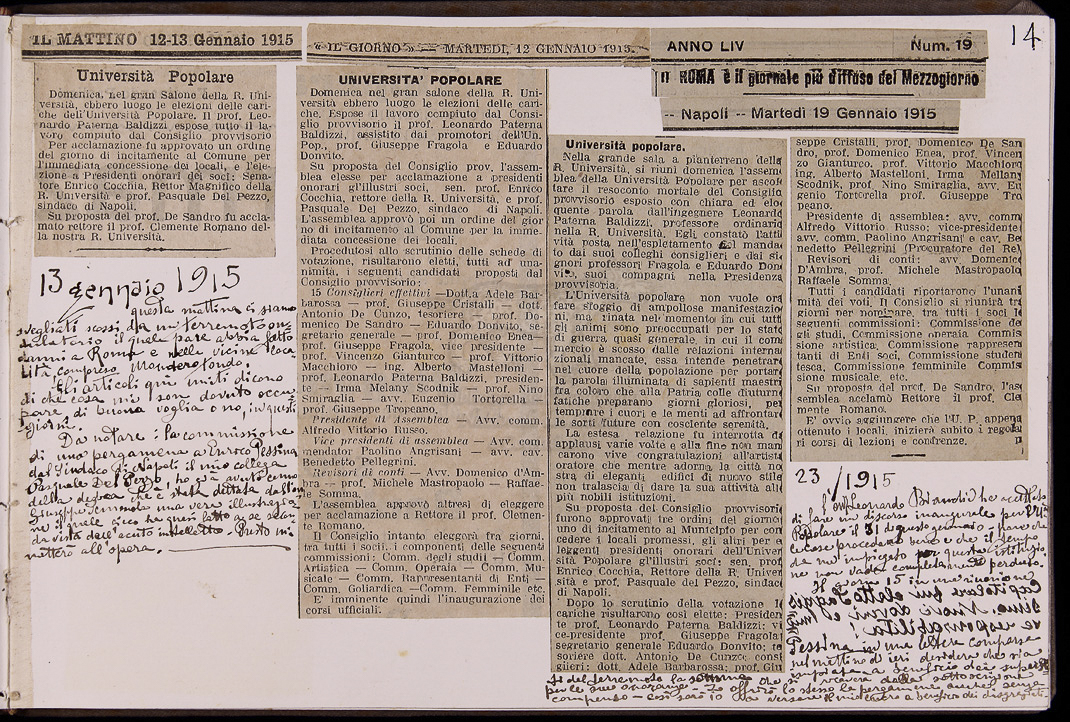 14
IL MATTINO 12-13 Gennaio 1915
Università Popolare
Domenica, nel gran Salone della R. Uni-
versità, ebbero luogo le elezioni delle cari-
che dell'Università Popolare. Il prof. Leo-
nardo Paterna Baldizzi espose tutto il la-
voro compiuto dal Consiglio provvisorio
Per acclamazione fu approvato un ordine
del giorno di incitamento al Comune per
l'immediata concessione dei locali, e l'ele-
zione a Presidenti onorari dei soci: Sena-
tore Enrico Cocchia, Rettor Magnifico della
R. Università e prof. Pasquale Del Pezzo,
sindaco di Napoli.
Su proposta del prof. De Sandro fu accla-
mato rettore il prof. Clemente Romano del-
la nostra R. Università.
13 gennaio 1915
questa mattina ci siamo
svegliati scossi da un terremoto on-
dulatorio il quale pare abbia fatto
danni a Roma e nelle vicine loca
lità, compreso Monderofondo.
Gli articoli qui uniti dicono
di che cosa mi son dovuto occu-
pare, di buona voglia o no, in questi
giorni.
Da notare: la commissione
di una pergamena a Enrico Pessina
dal Sindaco di Napoli il mio collega
Pasquale Del Pezzo, ho
della dedica che è stata dettata dallon
Giuseppe una vera illustrazio
ne il quale cieco ha quasi fatto a se
da vista dell'acuto intelletto - Presto mi
metterò all'opera.
« IL GIORNO » — MARTEDI, 12 GENNAIO 1915.
UNIVERSITA' POPOLARE
Domenica nel gran salone della R. Uni-
versità ebbero luogo le elezioni delle cari-
che. Espose il lavoro compiuto dal Consi-
glio provvisorio il prof. Leonardo Paterna
Baldizzi, assistito dai promotori dell'Un.
Pop., prof. Giuseppe Fragola e Eduardo
Donvito.
Su proposta del Consiglio prov. l'assem-
blea elesse per acclamazione a presidenti
onorari gl'illustri soci, sen. prof. Enrico
Cocchia, rettore della R. Università, e prof.
Pasquale Del Pezzo, sindaco di Napoli.
L'assemblea approvò poi un ordine del gior
no di incitamento al Comune per la imme-
diata concessione dei locali.
Procedutosi allo scrutinio delle schede di
votazione, risultarono eletti, tutti ad una-
nimità, i seguenti candidati proposti dal
Consiglio provvisorio:
15 Consiglieri effettivi —Dott.a Adele Bar-
barossa — prof. Giuseppe Cristalli — dott.
Antonio De Cunzo, tesoriere — prof. Do-
menico De Sandro — Eduardo Donvito, se-
gretario generale — prof. Domenico Enea—
prof. Giuseppe Fragola, vice presidente —
prof. Vincenzo Gianturco — prof. Vittorio
Macchioro — ing. Alberto Mastelloni —
prof. Leonardo Paterna Baldizzi, presiden-
te — Irma Melany Scodnik — prof. Nino
Smiraglia — avv. Eugenio Tortorella —
prof. Giuseppe Tropeano.
Presidente di Assemblea — Avv. comm.
Alfredo Vittorio Russo.
Vice presidenti di assemblea — Avv. com-
mendator Paolino Angrisani — avv. cav.
Benedetto Pellegrini.
Revisori di conti — Avv. Domenico d'Am-
bra — prof. Michele Mastropaolo — Raffae-
le Somma.
L'assemblea approvò altresì di eleggere
per acclamazione a Rettore il prof. Clemen-
te Romano.
Il Consiglio intanto eleggerà fra giorni,
tra tutti i soci, i componenti delle seguenti
commissioni: Comm. degli studi — Comm.
Artistica — Comm. Operaia — Comm. Mu-
sicale — Comm. Rappresentanti di Enti —
Comm. Goliardica —Comm. Femminile etc.
E' imminente quindi l'inaugurazione dei
corsi ufficiali.
ANNO LIV Num. 19
Il ROMA è il giornale più diffuso del Mezzogiorno
-- Napoli -- Martedì 19 Gennaio 1915
Università popolare.
Nella grande sala a pianterreno della
R. Università, si riunì domenica l'assem
blea della Università Popolare per ascol
tare il resoconto morale del Consiglio
provvisorio esposto con chiara ed elo
quente parola dall'ingegnere Leonardo
Paterna Baldizzi, professore ordinario
nella R. Università. Egli constatò l'atti
vità posta nell'espletamento del manda
to dai suoi colleghi consiglieri e dai si
gnori professori Fragola e Eduardo Don
vito, suoi compagni nella Presidenza
provvisoria.
L'Università popolare non vuole ora
fare sfoggio di ampollose manifestazio
ni, ma rinata nel momento in cui tutti
gli animi sono preoccupati per lo stato
di guerra quasi generale, in cui il com
mercio è scosso dalle relazioni interna
zionali mancate, essa intende penetrare
nel cuore della popolazione per portare
la parola illuminata di sapienti maestri
fra coloro che alla Patria colle diuturne
fatiche preparano giorni gloriosi, per
temprare i cuori e le menti ad affrontare
le sorti future con cosciente serenità.
La estesa relazione fu interrotta da
applausi varie volte e alla fine non man
carono vive congratulazioni all'artista
oratore che mentre adorna la città no
stra di eleganti edifici di nuovo stile
non tralascia di dare la sua attività alle
più nobili istituzioni.
Su proposta del Consiglio provvisorio
furono approvati tre ordini del giorno:
uno di incitamento al Municipio per con
cedere i locali promessi, gli altri per e
leggenti presidenti onorari dell'Univer
sità Popolare gl'illustri soci: sen. prof.
Enrico Cocchia, Rettore della R. Univer
sità e prof. Pasquale Del Pezzo, sindaco
di Napoli.
Dopo lo scrutinio della votazione le
cariche risultarono così elette: Presiden
te prof. Leonardo Paterna Baldizzi; vi
ce-presidente prof. Giuseppe Fragola;
segretario generale Eduardo Donvito; te
soriere dott. Antonio De Cunzo; consi
glieri: dott. Adele Barbarossa; prof. Giu
seppe Cristalli, prof. Domenico De San
dro, prof. Domenico Enea, prof. Vincen
zo Gianturco, prof. Vittorio Macchioro
ing. Alberto Mastelloni, Irma Mellany
Scodnik, prof. Nino Smiraglia, avv. Eu
genio Tortorella prof. Giuseppe Tro
peano.
Presidente di assemblea: avv. comm.
Alfredo Vittorio Russo; vice-presidente
avv. comm. Paolino Angrisani e cav. Be
nedetto Pellegrini (Procuratore del Re)
Revisori di conti: avv. Domenico
D'Ambra, prof. Michele Mastropaolo
Raffaele Somma.
Tutti i candidati riportarono l'unani
mità dei voti. Il Consiglio si riunirà tra
giorni per nominare, tra tutti i soci le
seguenti commissioni: Commissione de
gli studi, Commissione operaia Commis
sione artistica, Commissione rappresen
tanti di Enti soci, Commissione studen
tesca, Commissione femminile Commis
sione musicale, etc.
Su proposta del prof. De Sandro, l'as
semblea acclamò Rettore il prof. Cle
mente Romano.
E' ovvio aggiungere che l'U. P. appena
ottenuto i locali, inizierà subito i regola
ri corsi di lezioni e confrenze.
23/1915
L'on. Leonardo Bianchi ha accettato
di fare un discorso inaugurale per l'U.
Popolare il 31 di questo gennaio - pare che
le cose procedano bene e che il tempo
da me impiegato per questa istituzio
ne non vada completamente perduto.
Il giorno 15 in una riunione
Pessina in una lettera comparsa
nel mattino di ieri desidera che sia
a beneficio dei superst
ti del terremoto la somma che si ricaverà dalla sottoscrizione
per le sue onoranze - Io offrirò lo stesso la pergamena anche senza
compenso - così sarò io a versare il mio obolo a beneficio dei disgraziati.